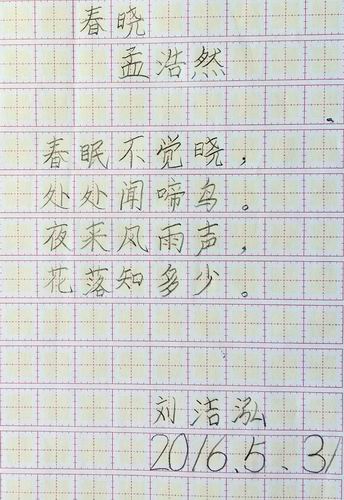 春晓
孟浩然
春眠不觉晓，
处处闻啼鸟。
夜来风雨声，
花落知多少。
刘洁泓
2016.5.31